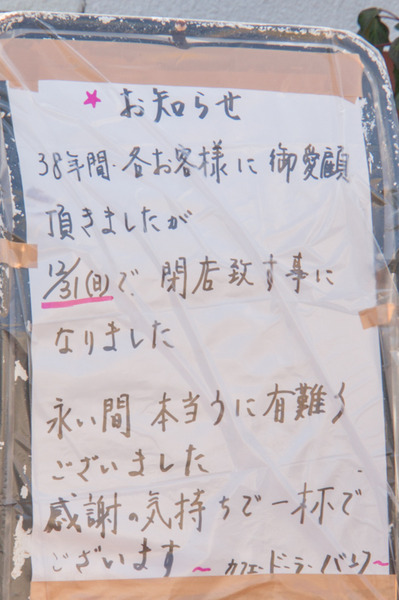 ★ お知らせ
38年間・各お客様に御愛顧
頂きましたが
12/31(日)で 閉店致す事に
なりました
永い間 本当うに有難う
ございました
感謝の気持ちで一杯で
ございます ～カフェードーラー